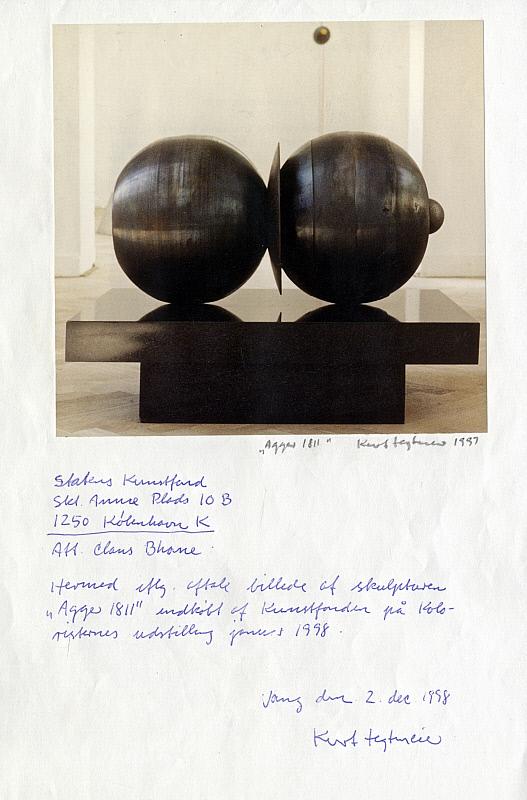 "Agger 1811" Kurt Tegtmeier 1997
Statens Kunstfond
Skt. Annæ Plads 10 B
1250 København K
Att. Claus Bhane
Hermed iflg. aftale billede af skulpturen
„Agger 1811" indkøbt af Kunstfonden på Kolo-
risternes udstilling januar 1998.
Vang den 2. dec. 1998
Kurt Tegtmeier